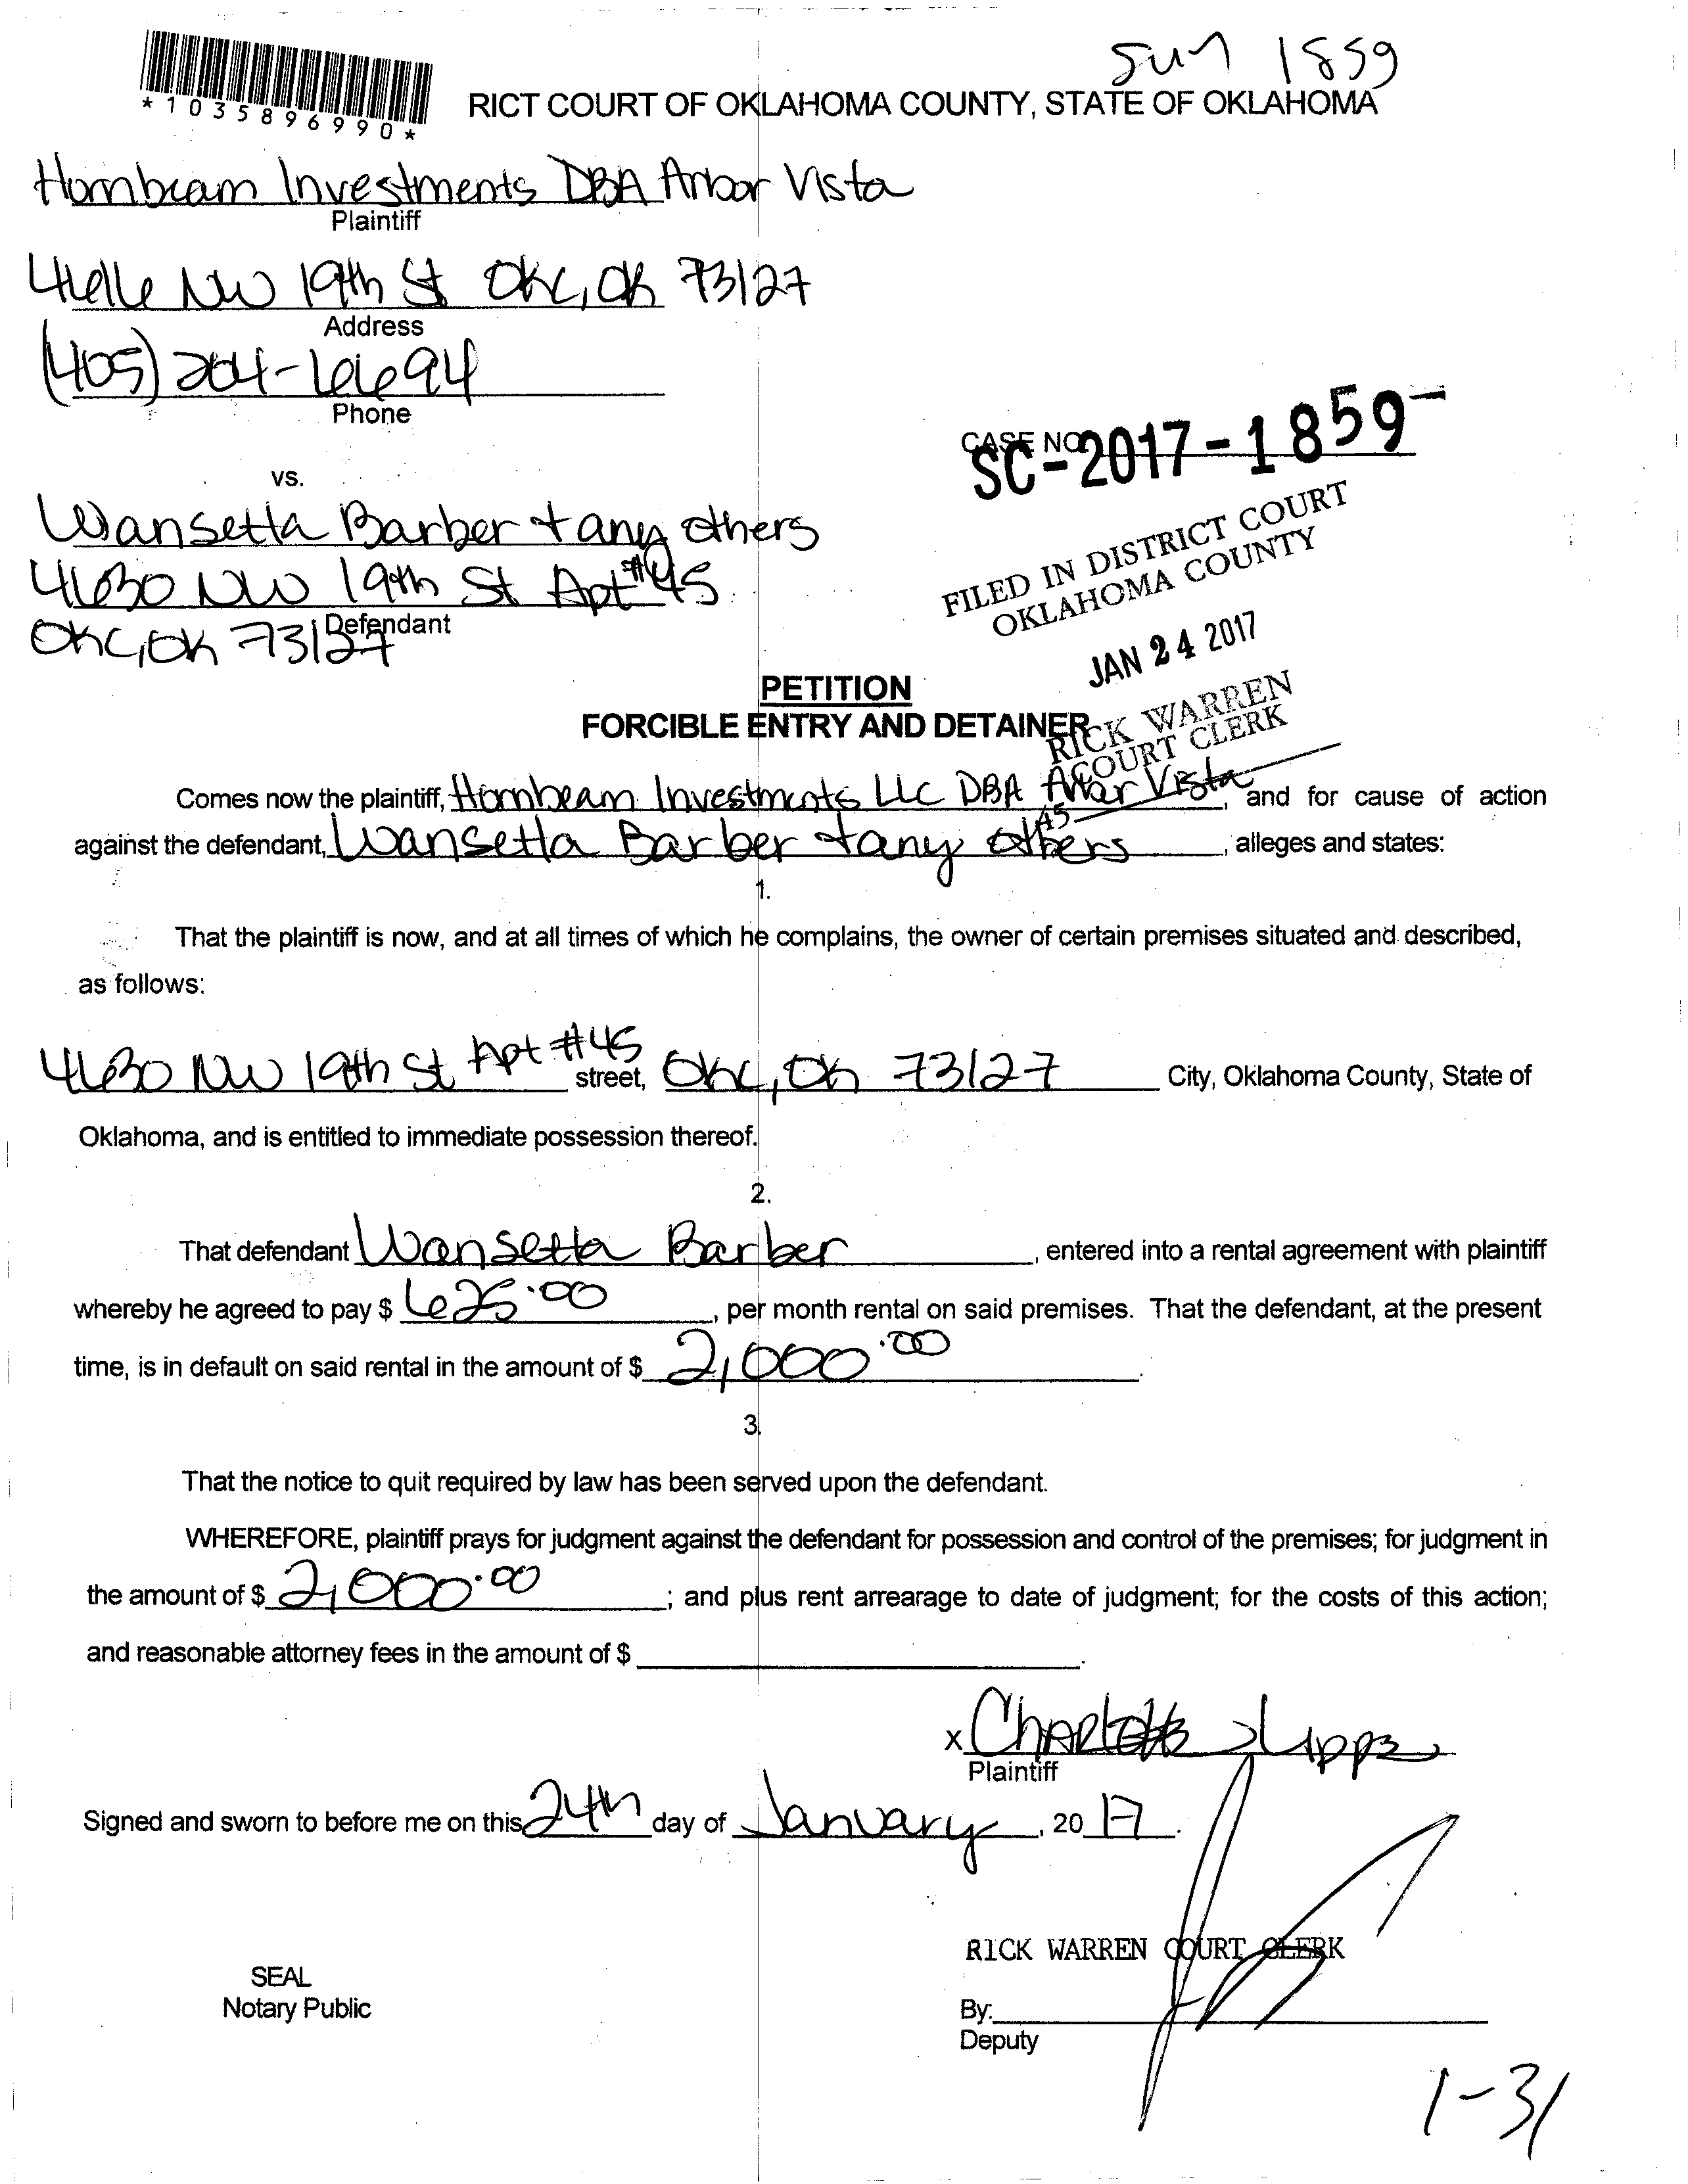 1859
*1035896990*
RICT COURT OF OKLAHOMA COUNTY, STATE OF OKLAHOMA
Hornbeam Investments DBA Arbor Vista
Plaintiff
4616 NW 19th St OKC, OK 73127
Address
(405) 204-6694
Phone
CASE NO.
SC-2017-1859-
vs.
Wansetta Barber + any others
4630 NW 19th St Apt #45
Defendant
OKC, OK 73127
FILED IN DISTRICT COURT
OKLAHOMA COUNTY
JAN 24 2017
RICK WARREN
COURT CLERK
45
PETITION
FORCIBLE ENTRY AND DETAINER
Comes now the plaintiff, Hornbeam Investments LLC DBA Arbor Vista, and for cause of action
against the defendant, Wansetta Barber + any others, alleges and states:
1.
That the plaintiff is now, and at all times of which he complains, the owner of certain premises situated and described,
as follows:
4630 NW 19th St Apt #45 street, OKC, OK 73127 City, Oklahoma County, State of
Oklahoma, and is entitled to immediate possession thereof.
2.
That defendant Wansetta Barber, entered into a rental agreement with plaintiff
whereby he agreed to pay $ 625.00, per month rental on said premises. That the defendant, at the present
time, is in default on said rental in the amount of $ 2,000.00.
3.
That the notice to quit required by law has been served upon the defendant.
WHEREFORE, plaintiff prays for judgment against the defendant for possession and control of the premises; for judgment in
the amount of $ 2,000.00; and plus rent arrearage to date of judgment; for the costs of this action;
and reasonable attorney fees in the amount of $
x Charlotte Lipps
Plaintiff
Signed and sworn to before me on this 24th day of January, 2017.
RICK WARREN COURT CLERK
SEAL
Notary Public
By:
Deputy
1-31